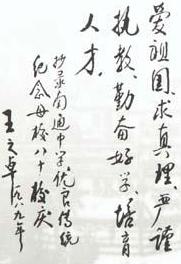 爱祖国、求真理、严谨
执教、勤奋好学、培育
人才、
抄录南通中学优良传统
纪念母校八十校庆
王之卓
一九八九年